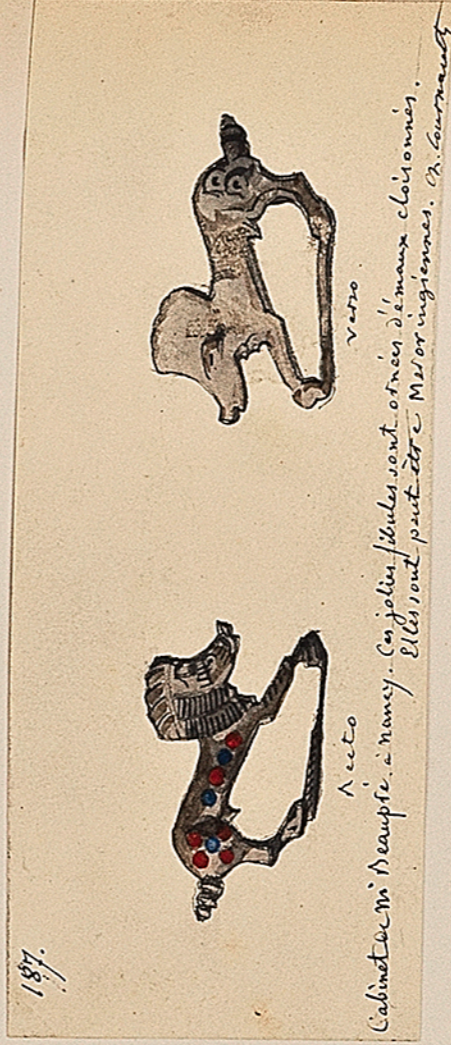 187.
recto
verso.
Cabinet de Mr Beaupré. à Nancy. Ces jolies fibules sont ornées d'émaux cloisonnés.
Elles sont peut être Merovingiennes. Ch. Cournault